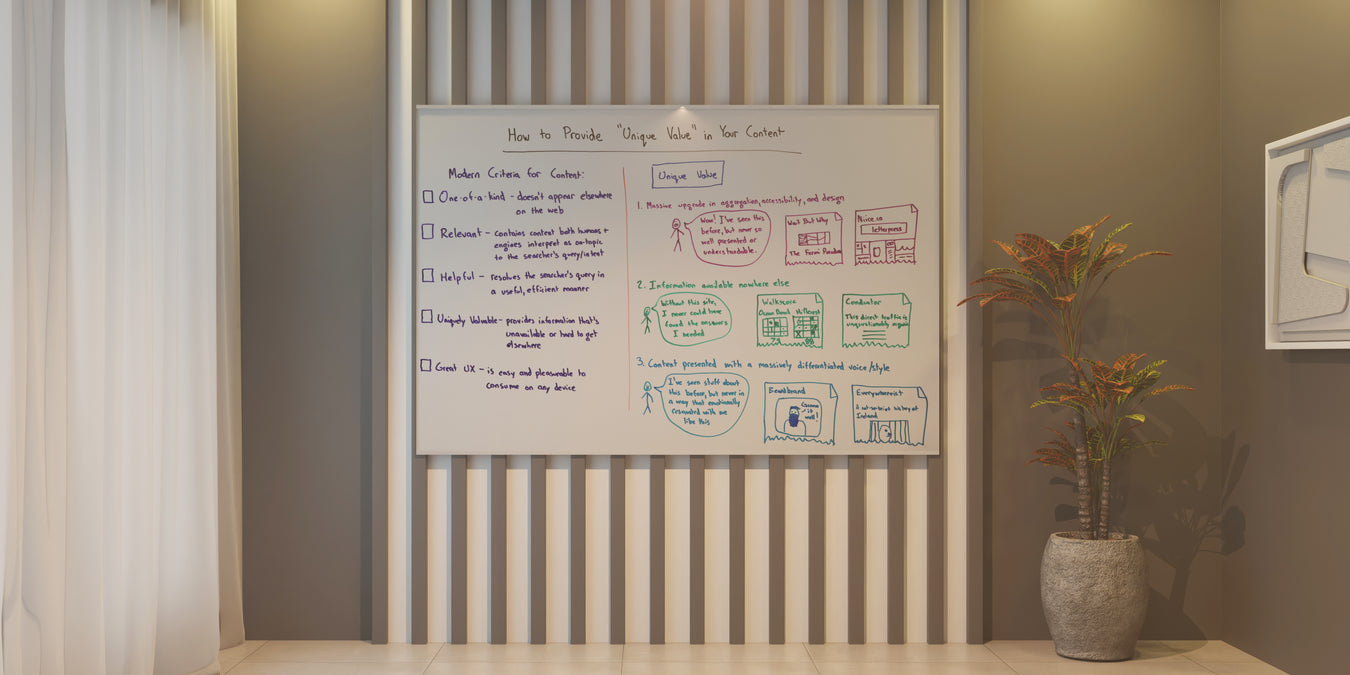 How to Provide "Unique Value" in Your Content
Modern Criteria for Content:
One-of-a-kind - doesn't appear elsewhere
on the web
Relevant - contains content both humans +
engines interpret as on-topic
to the searcher's query/intent
Helpful - resolves the searcher's query in
a useful, efficient manner
Uniquely Valuable - provides information that's
unavailable or hard to get
elsewhere
Great UX - is easy and pleasurable to
consume on any device
Unique Value
1. Massive upgrade in aggregation, accessibility, and design
Wow! I've seen this
before, but never so
well presented or
understandable.
Wait But Why
The Fermi Paradox
Niice.co
letterpress
2. Information available nowhere else
Without this site,
I never could have
found the answers
I needed
Walkscore
Ocean Beach Hillcrest
73 88
Conductor
This direct traffic is
unquestionably organic
3. Content presented with a massively differentiated voice/style
I've seen stuff about
this before, but never in
a way that emotionally
resonated with me
like this
Beardbrand
it
well!
Everywhereist
A not-so-brief history of
Ireland